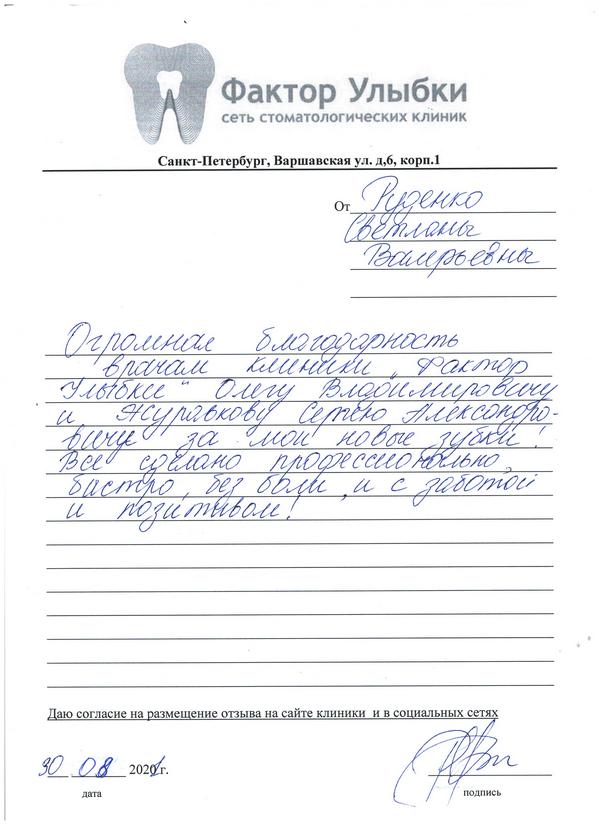 Фактор Улыбки
сеть стоматологических клиник
Санкт-Петербург, Варшавская ул. д,6, корп.1
От Руденко
Светланы
Валерьевны
Огромная благодарность
врачам клиники „Фактор
Улыбки" Олегу Владимировичу
и Журавкову Сергею Александро-
вичу за мои новые зубки!
Все сделано профессионально,
быстро, без боли, и с заботой
и позитивом!
Даю согласие на размещение отзыва на сайте клиники и в социальных сетях
30 08 2021 г.
дата
подпись